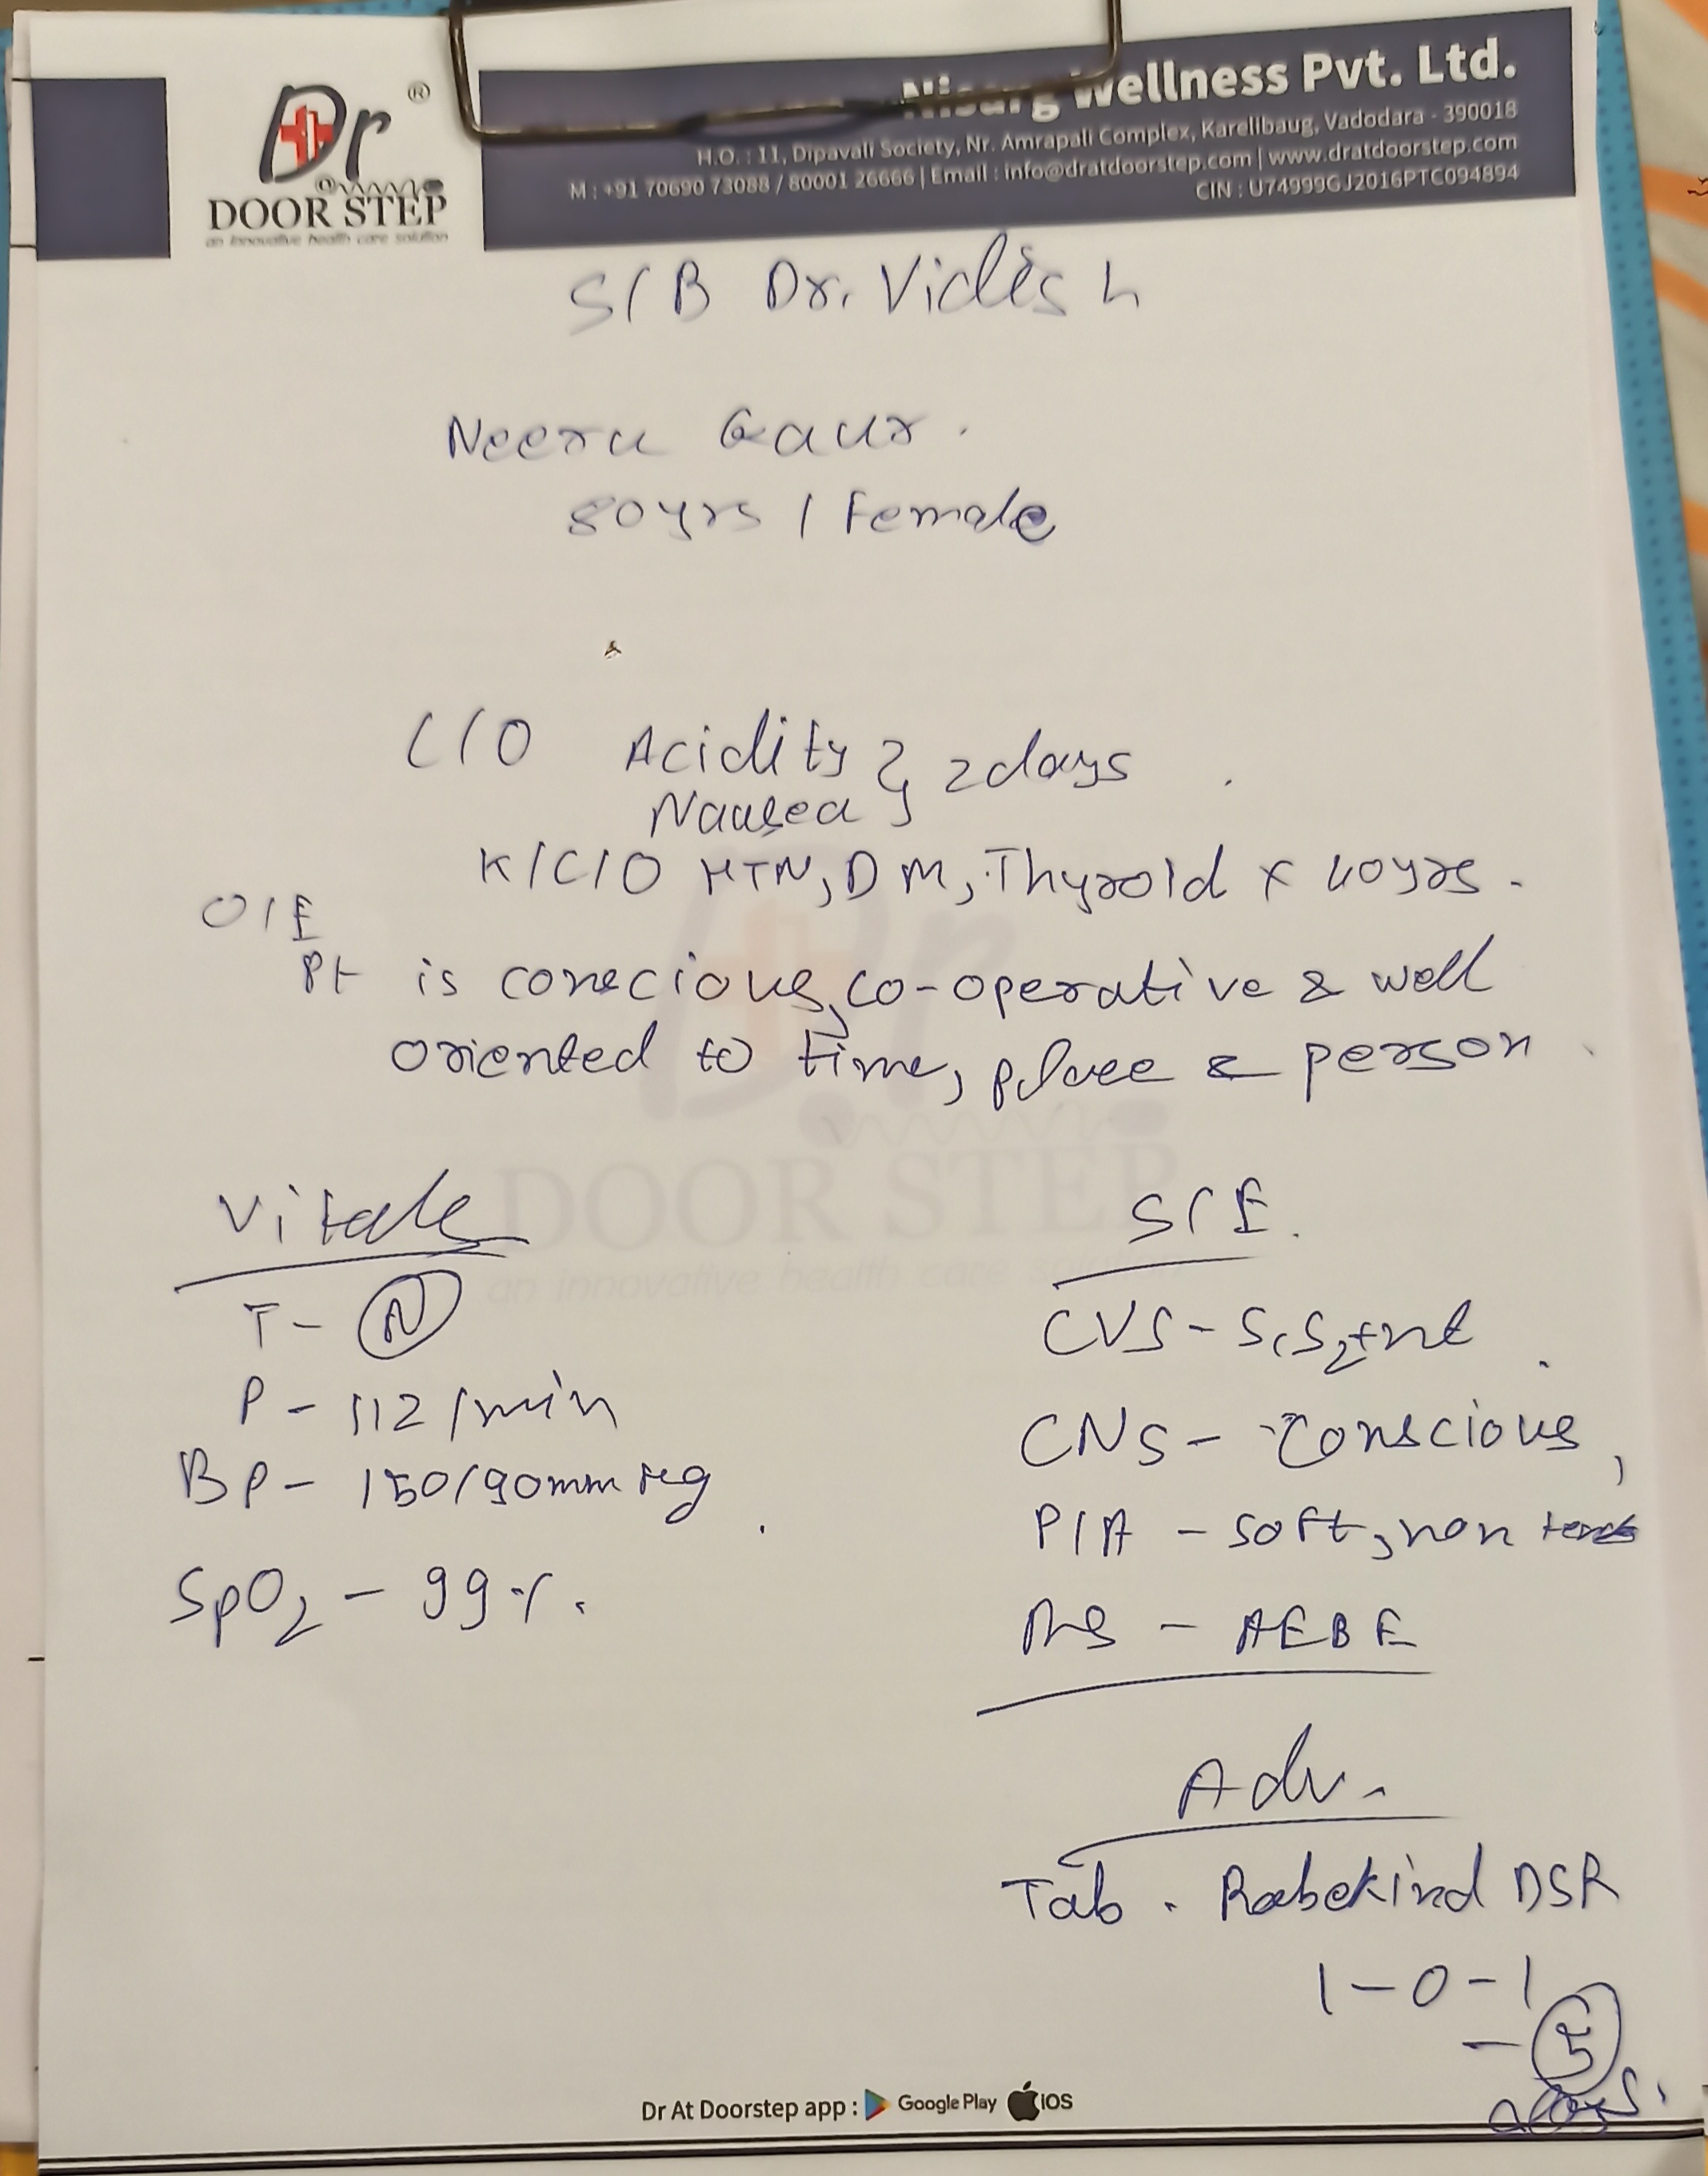 Dr ®
DOOR STEP
an innovative health care solution
Nisarg Wellness Pvt. Ltd.
H.O. : 11, Dipavali Society, Nr. Amrapali Complex, Karelibaug, Vadodara - 390018
M : +91 70690 73088 / 80001 26666 | Email : info@dratdoorstep.com | www.dratdoorstep.com
CIN : U74999GJ2016PTC094894
S/B Dr. Vidish
Neeru Gaur.
80yrs / Female
C/O Acidity } 2days
Nausea
K/C/O HTN, DM, Thyroid x 40yrs.
O/E
Pt is conscious, co-operative & well
oriented to time, place & person.
Vitals
T - (N)
P - 112/min
BP - 150/90mmHg
SpO2 - 99%.
S/E.
CVS - S1S2+nt
CNS - Conscious,
P/A - soft, non
RS - AEBE
Adv.
Tab. Rabekind DSR
1-0-1
- (5)
days.
DOOR STEP
an innovative health care solution
Dr At Doorstep app : Google Play iOS